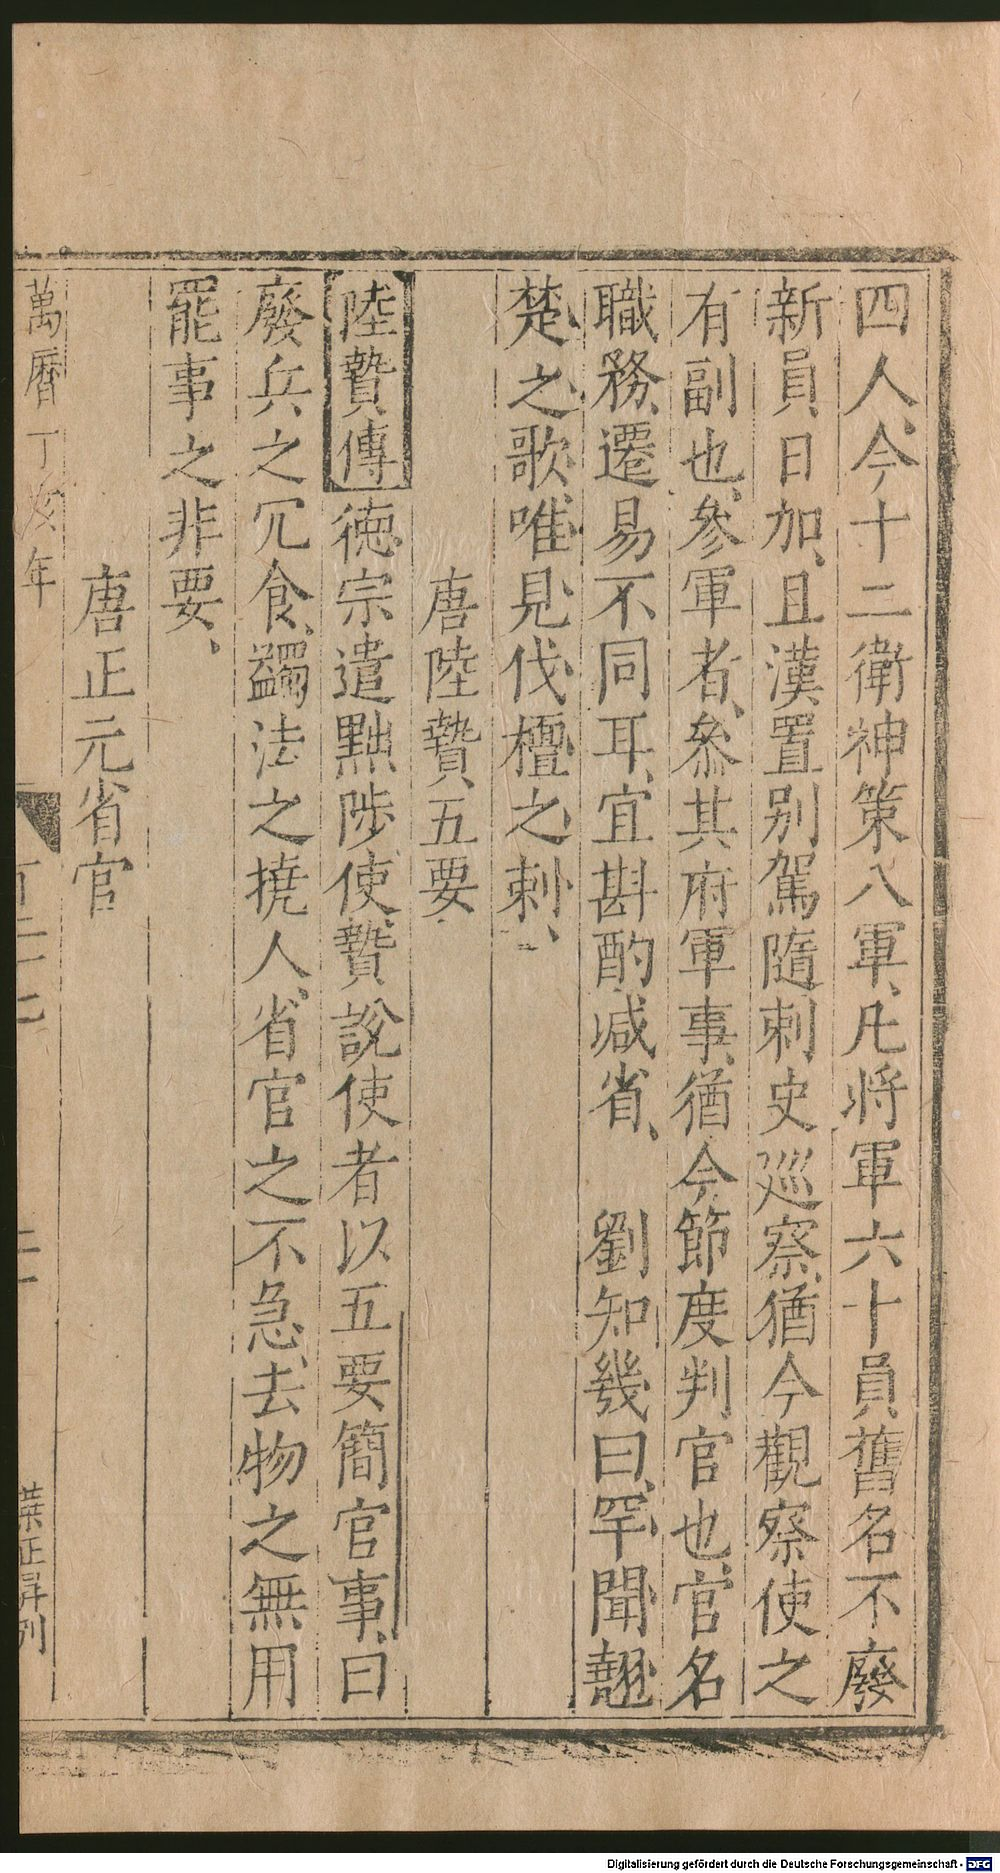 四人、今十二衛神策八軍、凡將軍六十員舊名不廢
新員日加、且漢置别駕隨刺史廵察、猶今觀察使之
有副也、參軍者、叅其府軍事、猶今節度判官也、官名
職務、遷易不同耳、宜斟酌减省、　劉知幾曰、罕聞翹
楚之歌、唯見伐檀之刺、
唐陸贄五要
陸贄傳德宗遣黜陟使、贄說使者以五要簡官事、曰
廢兵之冗食、蠲法之撓人、省官之不急、去物之無用
罷事之非要、
唐正元省官
萬曆丁亥年
百二十七
二
葉正昇刊
Digitalisierung gefördert durch die Deutsche Forschungsgemeinschaft - DFG